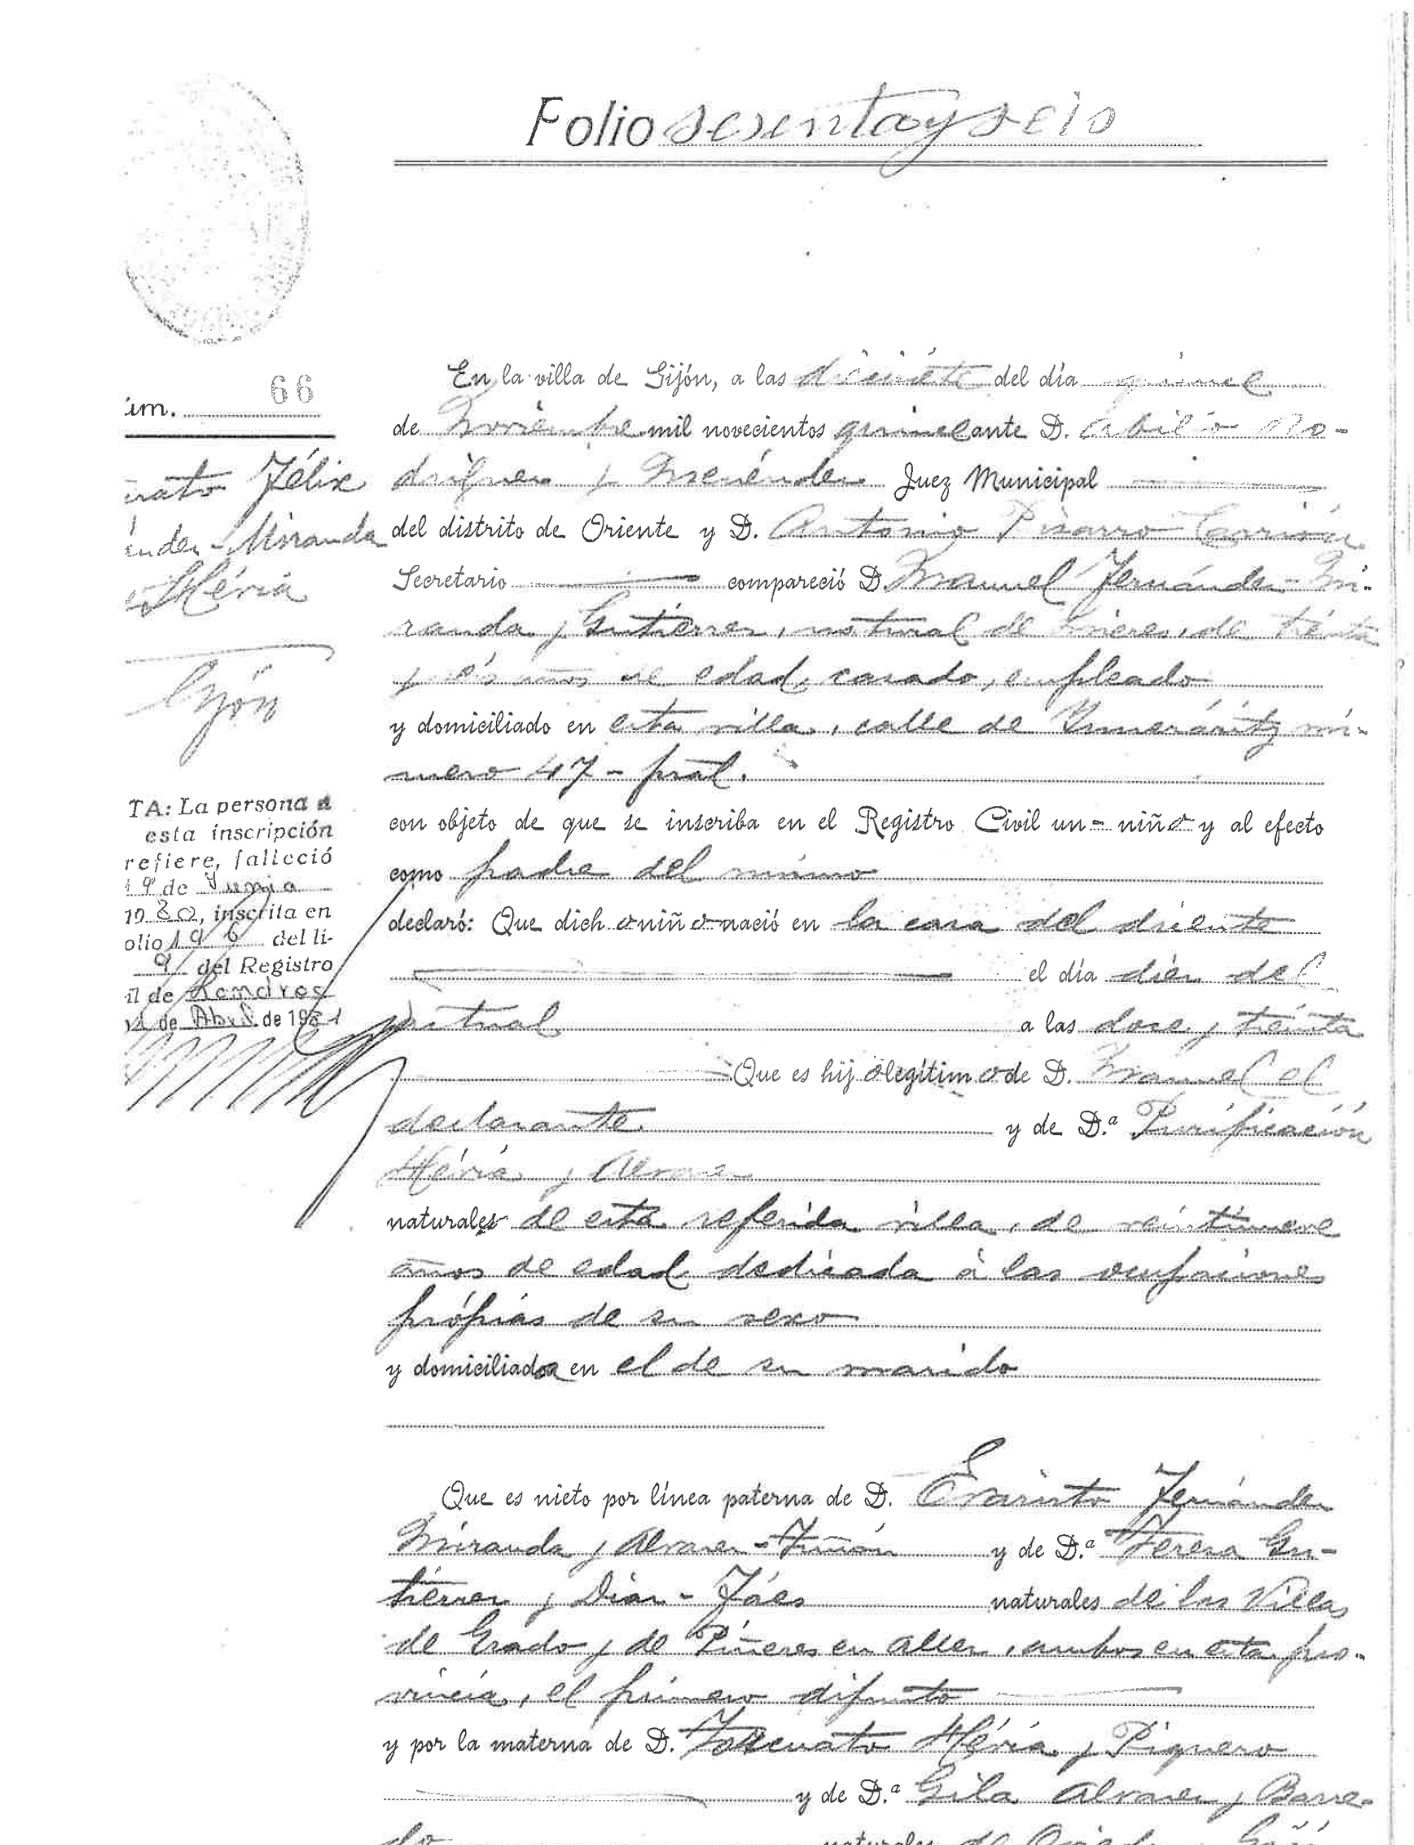 Folio sesenta y seis
66
úm.
En la villa de Gijón, a las diecisiete del día quince
de Noviembre mil novecientos quince ante D. Abilio Ro-
driguez y Menéndez Juez Municipal
del distrito de Oriente y D. Antonio Pizarro Carrión
Secretario compareció D Manuel Fernández-Mi-
randa y Gutiérrez, natural de Mieres, de treinta
y años de edad, casado, empleado
y domiciliado en esta villa, calle de nú-
mero 47 - pral.
con objeto de que se inscriba en el Registro Civil un- niño y al efecto
como padre del mismo
declaró: Que dicho niño nació en la casa del diciente
el día diez del
actual a las doce y treinta
Que es hijo legítimo de D. Manuel el
declarante y de D.ª Purificación
Hévia y Alvarez
naturales de esta referida villa, de veintinueve
años de edad, dedicada á las ocupaciones
própias de su sexo
y domiciliada en el de su marido
Que es nieto por línea paterna de D. Evaristo Fernández
Miranda y Alvarez-Tuñón y de D.ª Teresa Gu-
tiérrez y Diaz-Fáes naturales de las Villas
de Grado y de Piñeres en Aller, ambos en esta pro-
vincia, el primero difunto
y por la materna de D. Torcuato Hévia y Piquero
y de D.ª Gila Alvarez y Barre-
do naturales de Oviedo
uato Félix
ández-Miranda
Hévia
Gijón
TA: La persona a
esta inscripción
refiere, falleció
19 de Junio
1980, inscrita en
olio 196 del li-
9 del Registro
il de Londres
de Abril de 1981